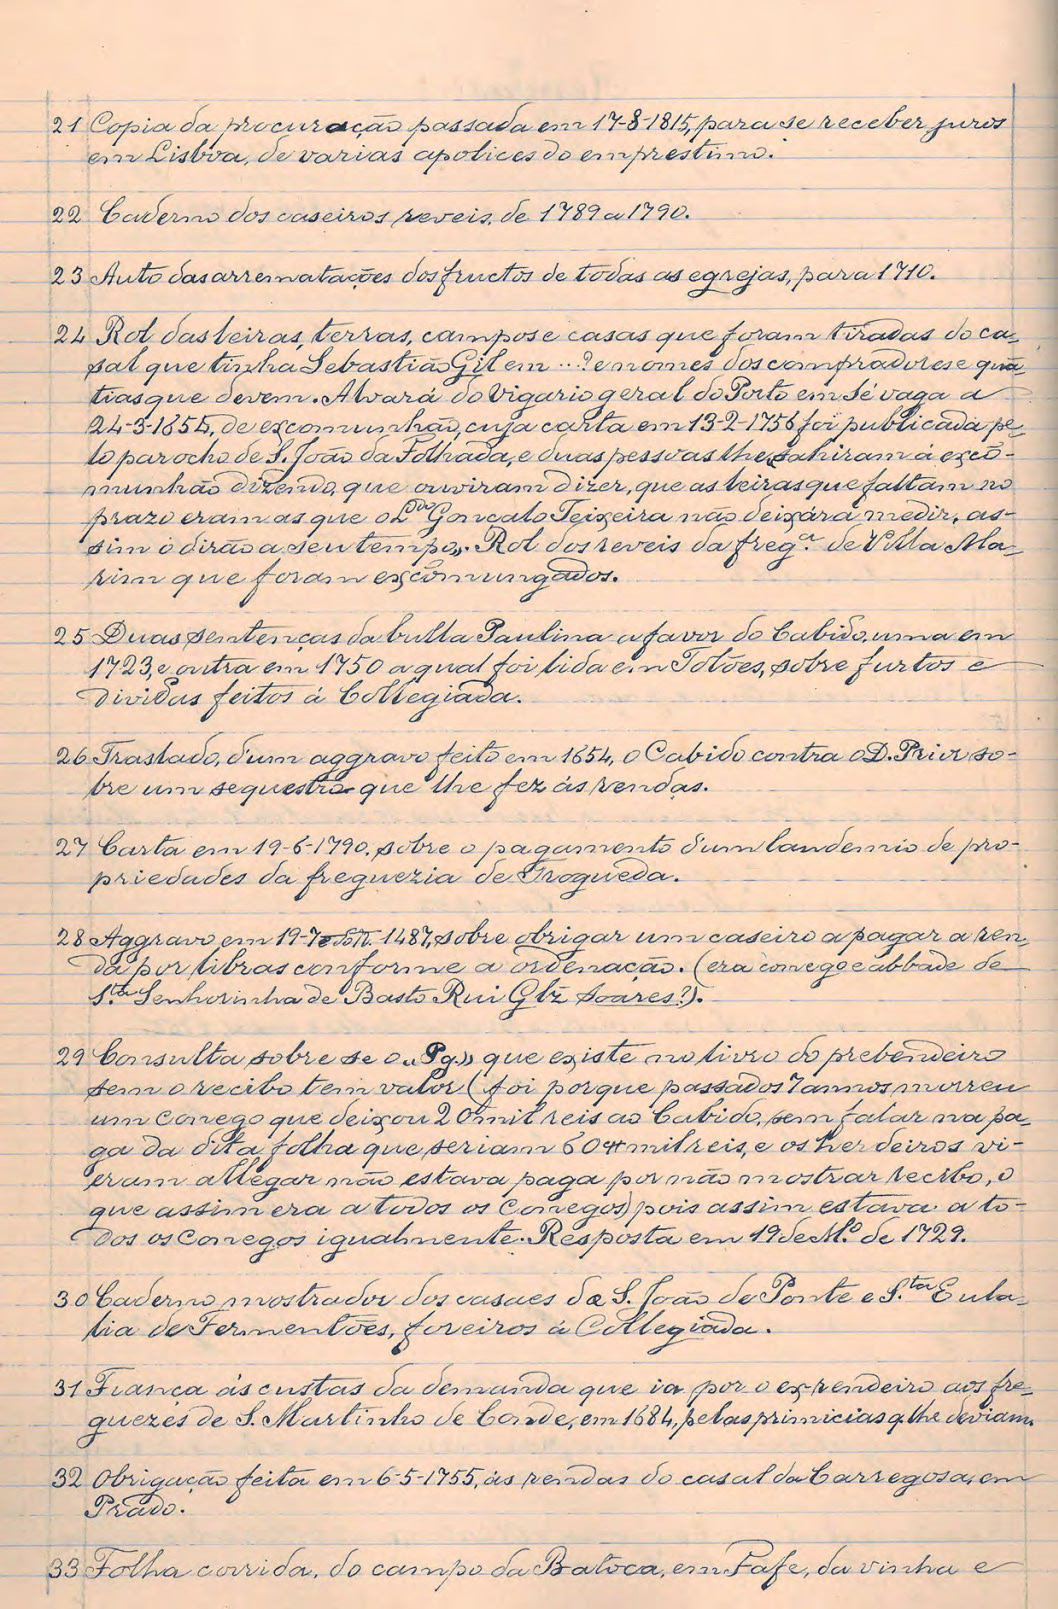 21 Copia da procuração passada em 17-8-1815, para se receber juros
em Lisboa, de varias apolices do emprestimo.
22 Caderno dos caseiros reveis, de 1789 a 1790.
23 Auto das arrematações dos fructos de todas as egrejas, para 1710.
24 Rol das leiras, terras, campos e casas que foram tiradas do ca-
sal que tinha Sebastião Gil em ...? e nomes dos compradores e quã-
tias que devem. Alvará do Vigario geral do Porto em Sé vaga a
de excomunhão, cuja carta em 13-2-1756 foi publicada pe-
lo parocho de S. João da Folhada, e duas pessoas lhe sahiram á excõ-
munhão dizendo, que ouviram dizer, que as leiras que faltam no
prazo eram as que o L.do Gonçalo Teixeira não deixára medir, as-
sim o dirão a seu tempo,,. Rol dos reveis da freg.a de Villa Ma-
rim que foram excõmungados.
25 Duas sentenças da bulla Paulina a favor do Cabido, uma em
1723, e outra em 1750 a qual foi lida em Tolões, sobre furtos e
dividas feitos á Collegiada.
26 Traslado, d'um aggravo feito em 1654, o Cabido contra o D. Prior so-
bre um sequestro que lhe fez ás rendas.
27 Carta em 19-6-1790, sobre o pagamento d'um laudemio de pro-
priedades da freguezia de Frogueda.
28 Aggravo, em 19-7 1487, sobre obrigar um caseiro a pagar a ren-
da por libras conforme a ordenação. (era conego e abbade de
S.ta Senhorinha de Basto Rui Glz Soares?).
29 Consulta sobre se o ,,Pg.,, que existe no livro do prebendeiro
sem o recibo tem valor (foi porque passados 7 annos morreu
um conego que deixou 20 mil reis ao Cabido, sem falar na pa-
ga da dita folha que seriam 604 mil reis, e os herdeiros vi-
eram allegar não estava paga por não mostrar recibo, o
que assim era a todos os conegos) pois assim estava a to-
dos os conegos igualmente. Resposta em 19 de M.ço de 1729.
30 Caderno, mostrador dos casaes de S. João de Ponte e S.ta Eula-
lia de Fermentões, foreiros á Collegiada.
31 Fiança ás custas da demanda que ia por o ex-rendeiro aos fre-
guezes de S. Martinho de Conde, em 1684, pelas primicias q. lhe deviam.
32 Obrigação feita em 6-5-1755, ás rendas do casal da Carregosa, em
Prado.
33 Folha corrida, do campo da Batoca, em Fafe, da vinha e